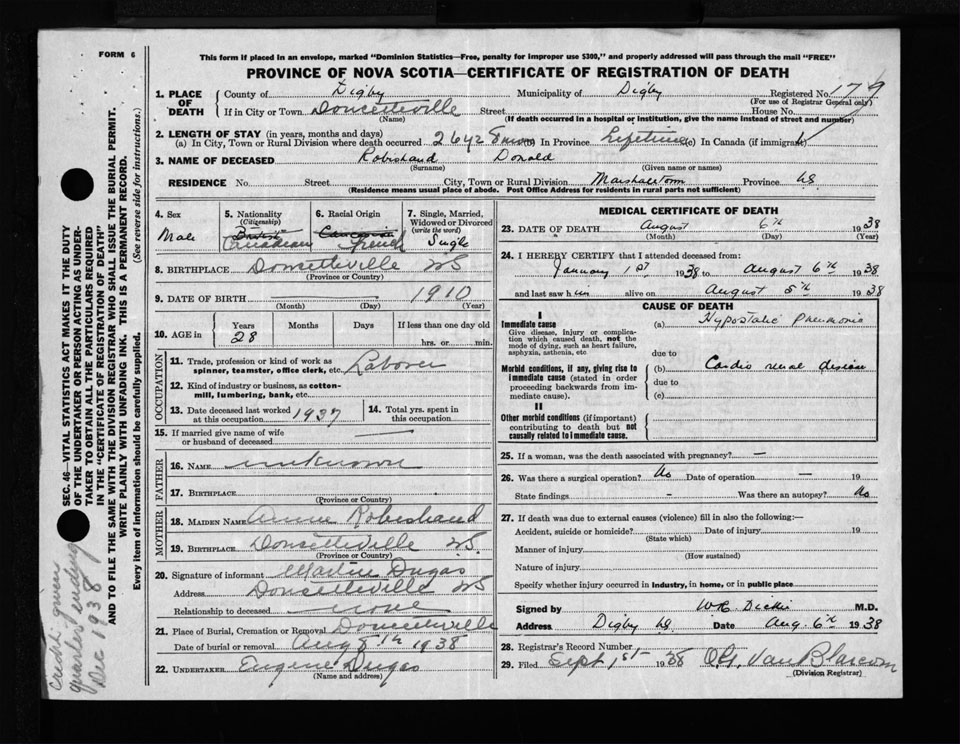 FORM 6
This form if placed in an envelope, marked "Dominion Statistics—Free, penalty for improper use $300," and properly addressed will pass through the mail "FREE"
PROVINCE OF NOVA SCOTIA—CERTIFICATE OF REGISTRATION OF DEATH
1. PLACE OF DEATH County of Digby Municipality of Digby Registered No. 179
(For use of Registrar General only)
If in City or Town Doucetteville Street House No.
(Name) (If death occurred in a hospital or institution, give the name instead of street and number)
2. LENGTH OF STAY (in years, months and days)
(a) In City, Town or Rural Division where death occurred 26 yrs 8 mos (b) In Province Lifetime (c) In Canada (if immigrant)
3. NAME OF DECEASED Robichaud Donald
(Surname) (Given name or names)
RESIDENCE No. Street City, Town or Rural Division Marshalltown Province NS
(Residence means usual place of abode. Post Office Address for residents in rural parts not sufficient)
4. Sex Male
5. Nationality (Citizenship) British Canadian
6. Racial Origin French
7. Single, Married, Widowed or Divorced (write the word) Single
8. BIRTHPLACE Doucetteville NS
(Province or Country)
9. DATE OF BIRTH 1910
(Month) (Day) (Year)
10. AGE in Years 28 Months Days If less than one day old hrs. or min.
OCCUPATION
11. Trade, profession or kind of work as spinner, teamster, office clerk, etc. Laborer
12. Kind of industry or business, as cotton-mill, lumbering, bank, etc.
13. Date deceased last worked at this occupation 1937
14. Total yrs. spent in this occupation
15. If married give name of wife or husband of deceased
FATHER
16. NAME unknown
17. BIRTHPLACE
(Province or Country)
MOTHER
18. MAIDEN NAME Annie Robichaud
19. BIRTHPLACE Doucetteville NS.
(Province or Country)
20. Signature of informant Martin Dugas
Address Doucetteville NS
Relationship to deceased none
21. Place of Burial, Cremation or Removal Doucetteville
Date of burial or removal Aug 8th 1938
22. UNDERTAKER Eugene Dugas
(Name and address)
MEDICAL CERTIFICATE OF DEATH
23. DATE OF DEATH August 6th 1938
(Month) (Day) (Year)
24. I HEREBY CERTIFY that I attended deceased from:
January 1st 1938 to August 6th 1938
and last saw him alive on August 5th 1938
CAUSE OF DEATH
I
Immediate cause
Give disease, injury or complication which caused death, not the mode of dying, such as heart failure, asphyxia, asthenia, etc
(a) Hypostatic Pneumonia
due to
Morbid conditions, if any, giving rise to immediate cause (stated in order proceeding backwards from immediate cause).
(b) Cardio renal disease
due to
(c)
II
Other morbid conditions (if important) contributing to death but not causally related to immediate cause.
25. If a woman, was the death associated with pregnancy? —
26. Was there a surgical operation? No Date of operation — 19
State findings - Was there an autopsy? No
27. If death was due to external causes (violence) fill in also the following:—
Accident, suicide or homicide? Date of injury 19
(State which)
Manner of injury
(How sustained)
Nature of injury
Specify whether injury occurred in industry, in home, or in public place
Signed by W.R. Dickie M.D.
Address Digby NS Date Aug. 6th 1938
28. Registrar's Record Number
29. Filed Sept 1st 1938 Van Blarcom
(Division Registrar)
SEC. 46—VITAL STATISTICS ACT MAKES IT THE DUTY
OF THE UNDERTAKER OR PERSON ACTING AS UNDER-
TAKER TO OBTAIN ALL THE PARTICULARS REQUIRED
IN THE "CERTIFICATE OF REGISTRATION OF DEATH"
AND TO FILE THE SAME WITH THE DIVISION REGISTRAR WHO SHALL ISSUE THE BURIAL PERMIT.
WRITE PLAINLY WITH UNFADING INK. THIS IS A PERMANENT RECORD.
Every item of information should be carefully supplied. (See reverse side for instructions.)
Credit given
quarter ending
Dec 1938